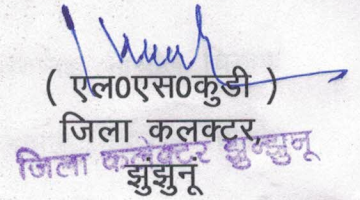 ( एल0एस0कुडी )
जिला कलक्टर,
जिला कलेक्टर झुन्झुनू
झुंझुनूं